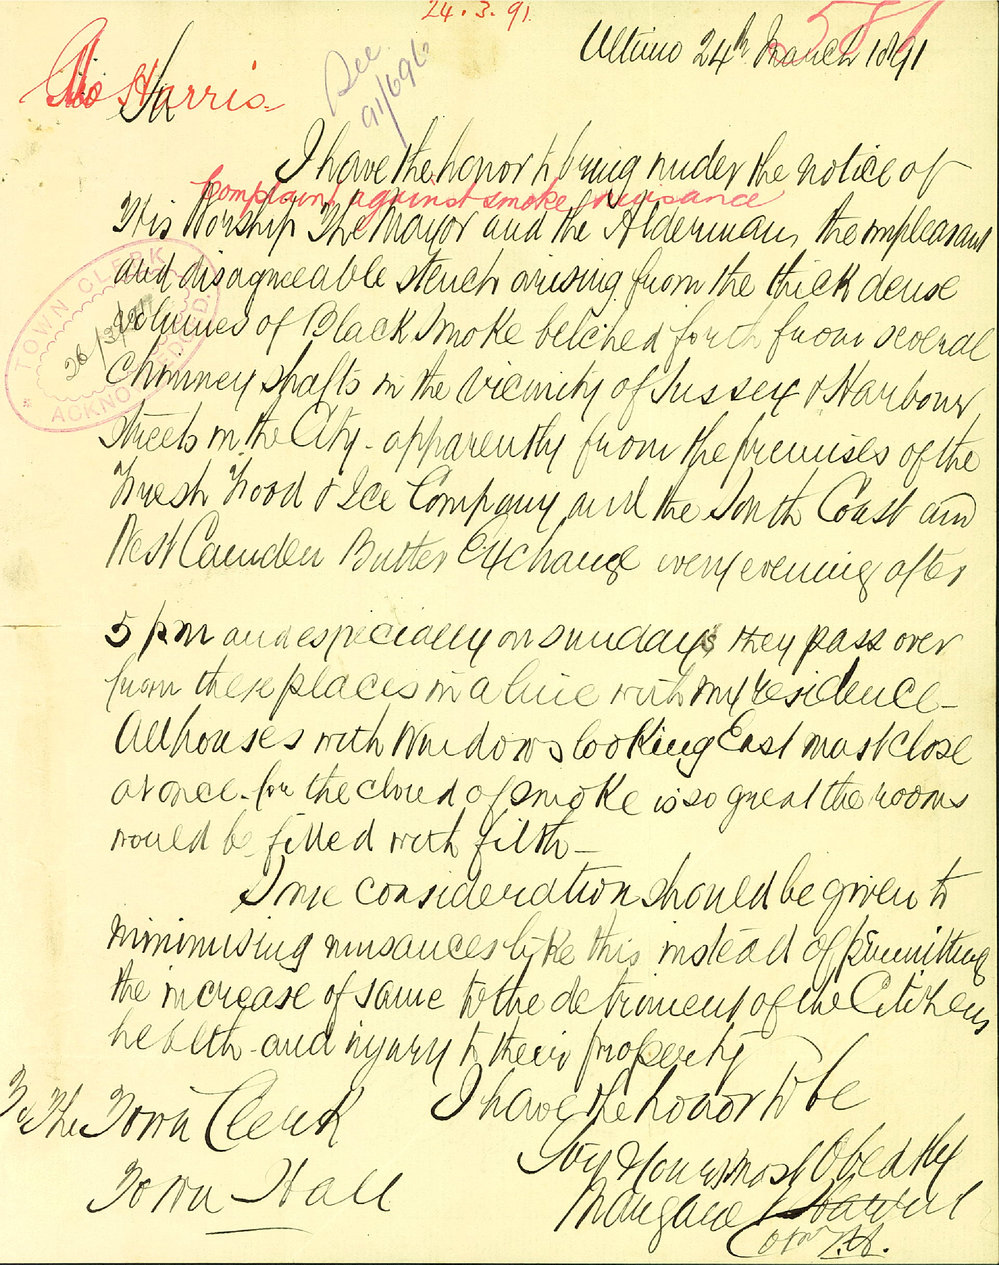 24.3.91
581
Ultimo 24th March 1891
See
91/696
Geo Harris
Sir
I have the honor to bring under the notice of
Complaint against smoke nuisance
His Worship The Mayor and the Alderman, the unpleasant
and disagreeable stench arising from the thick dense
TOWN CLERK
26/3/91
ACKNOWLEDGED
Volumes of Black Smoke belched forth from several
Chimney shafts in the vicinity of Sussex & Harbour
Streets in the City - apparently from the premises of the
Fresh Food & Ice Company and the South Coast and
West Camden Butter Exchange every evening after
5 pm and especially on Sundays they pass over
from these places in a line with my residence -
All houses with Windows looking East must close
at once - for the cloud of smoke is so great the rooms
would be filled with filth -
Some consideration should be given to
minimising nuisances lyke this instead of permitting
the increase of same to the detriment of the Citizens
health - and injury to their property
I have the honor to be
To The Town Clerk
Town Hall
Sir Your most Obed
Margaret Harris